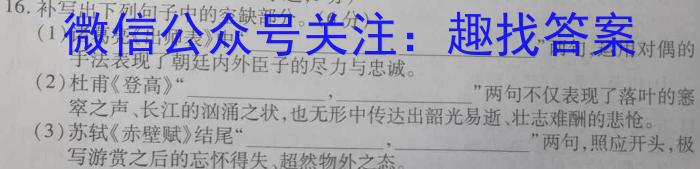 16. 补写出下列句子中的空缺部分。(6分)
微信公众号关注：趣找答案
(1)
手法表现了朝廷内外臣子的尽力与忠诚。
(2)杜甫《登高》“____________,____________”两句不仅表现了落叶的窸
窣之声、长江的汹涌之状,也无形中传达出韶光易逝、壮志难酬的悲怆。
(3)苏轼《赤壁赋》结尾“____________,____________”两句,照应开头,极
写游赏之后的忘怀得失、超然物外之态。